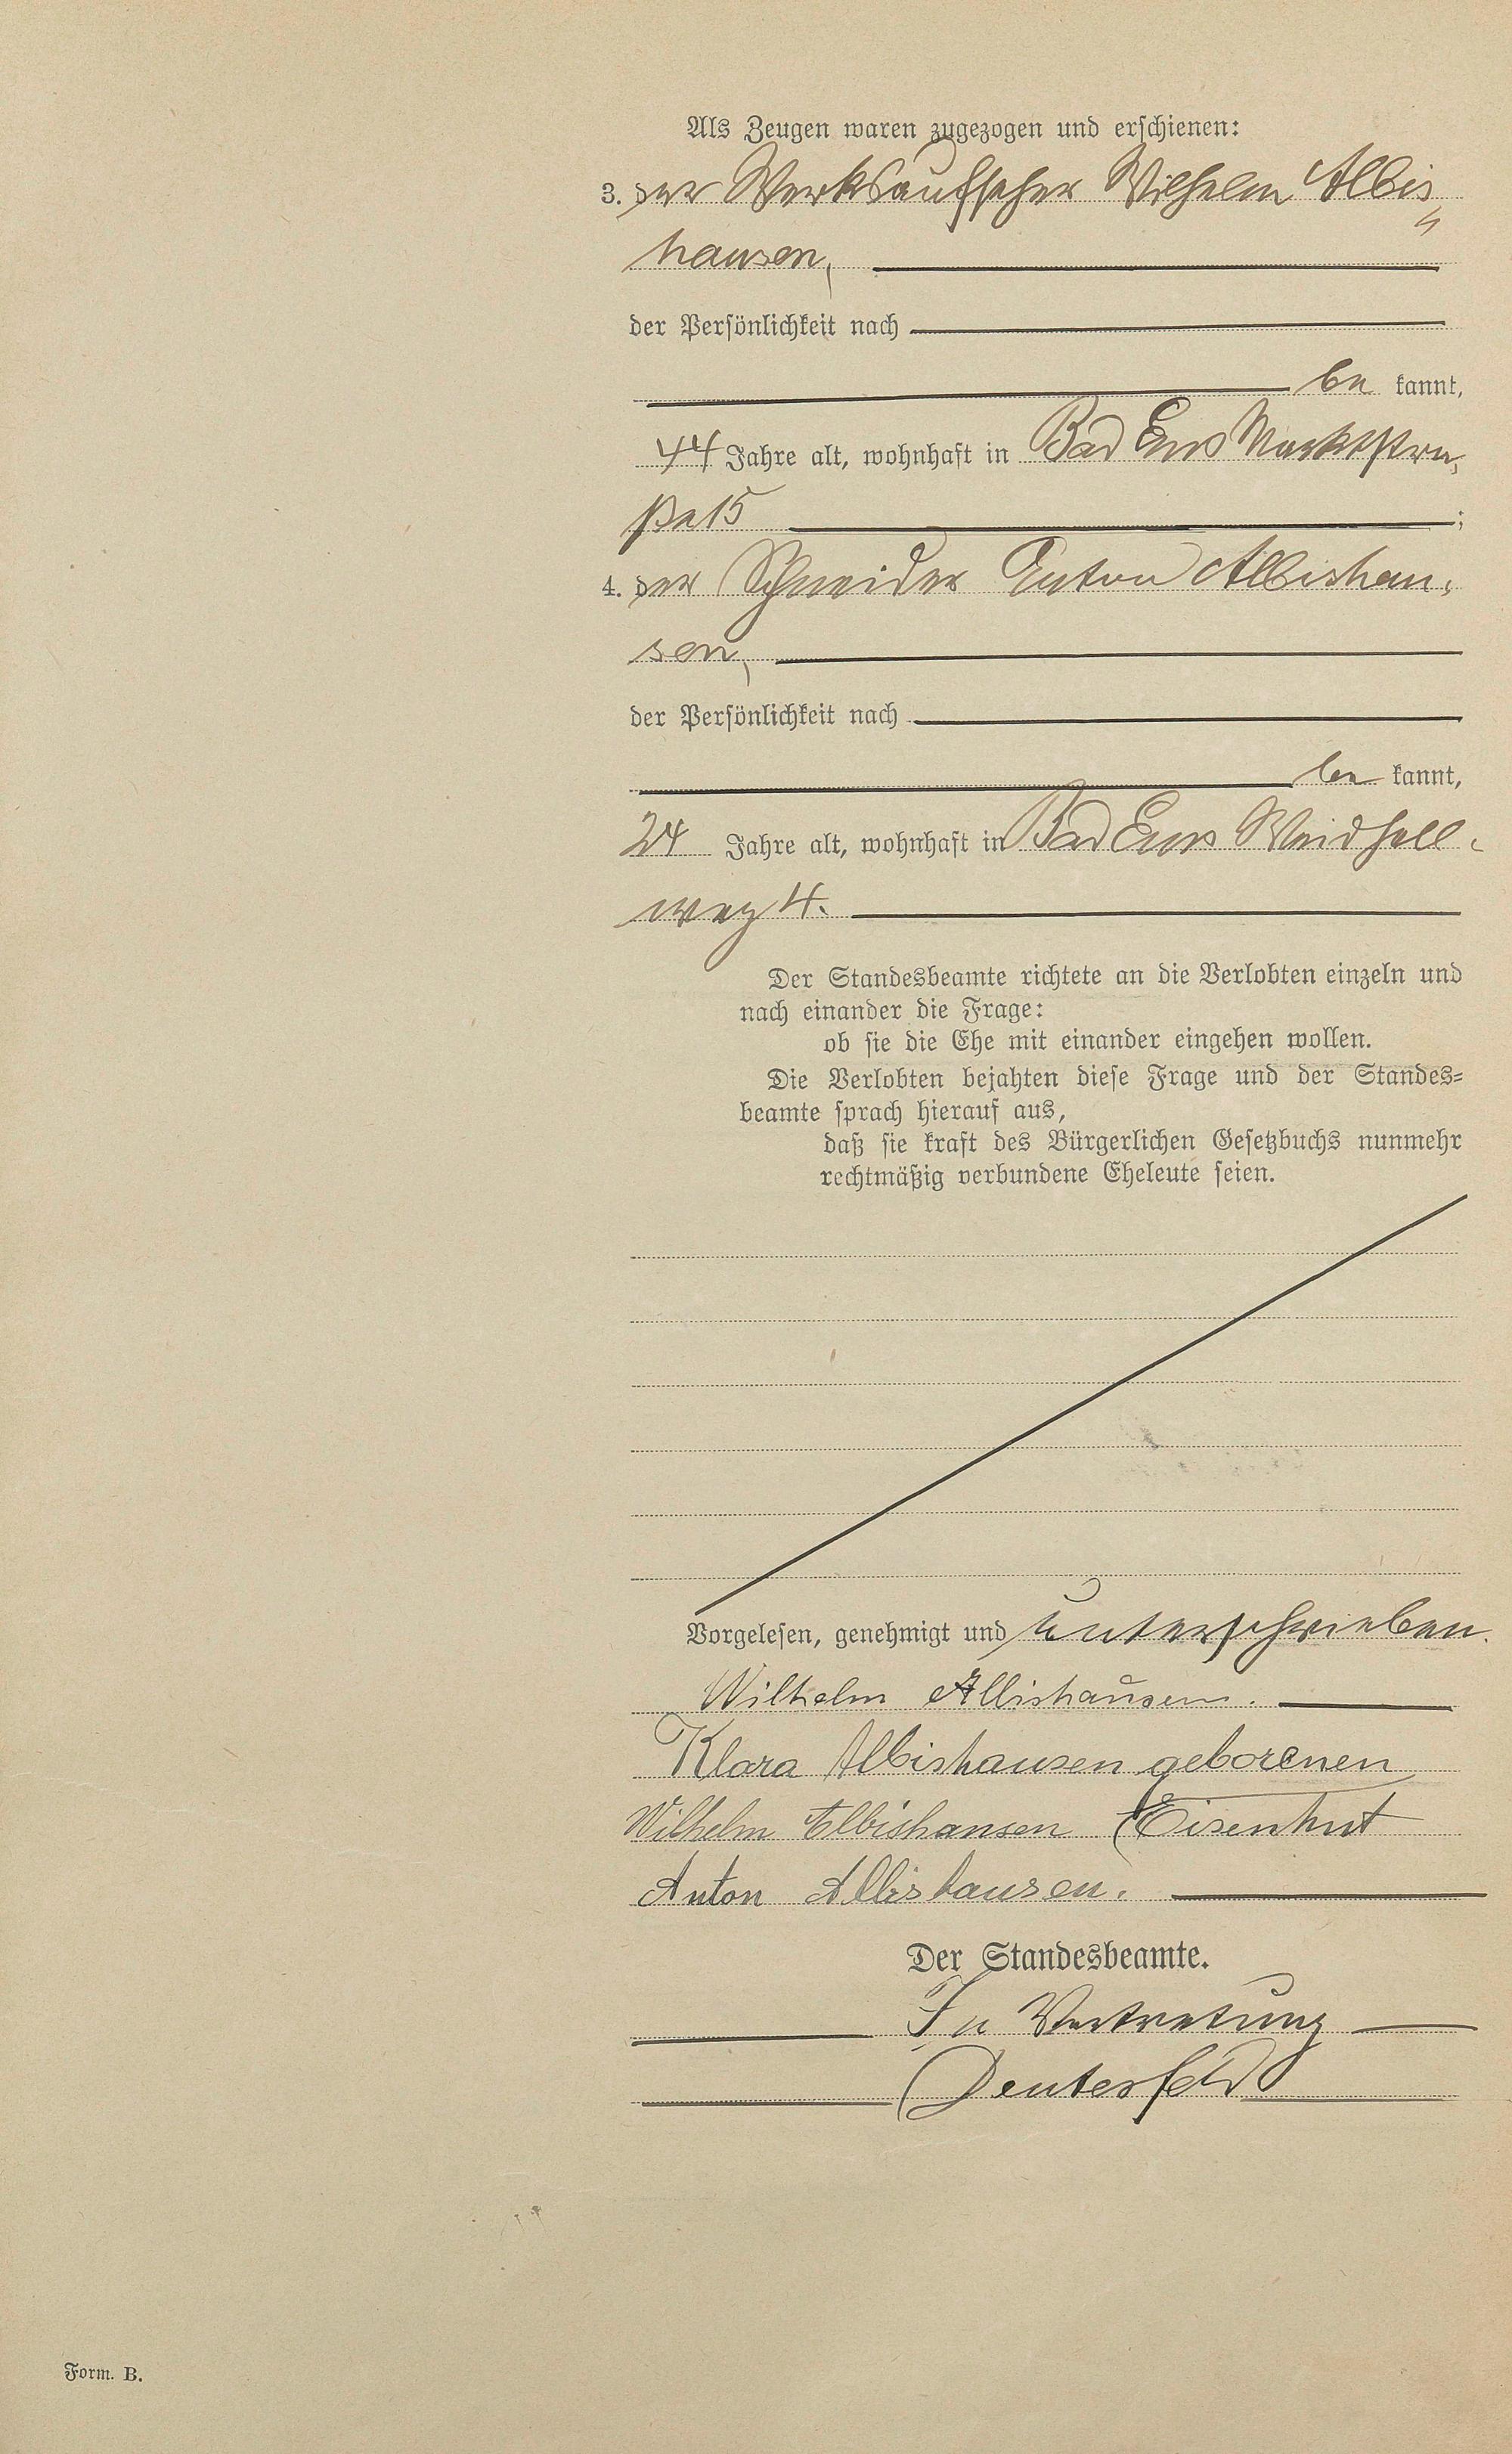 Als Zeugen waren zugezogen und erschienen:
3. der Werksaufseher Wilhelm Albis„
hausen,
der Persönlichkeit nach
be kannt,
44 Jahre alt, wohnhaft in Bad Ems Marktstra„
ße 15 ;
4. der Schneider Anton Albishau„
sen,
der Persönlichkeit nach
be kannt,
24 Jahre alt, wohnhaft in Bad Ems Weidhell„
weg 4.
Der Standesbeamte richtete an die Verlobten einzeln und
nach einander die Frage:
ob sie die Ehe mit einander eingehen wollen.
Die Verlobten bejahten diese Frage und der Standes=
beamte sprach hierauf aus,
daß sie kraft des Bürgerlichen Gesetzbuchs nunmehr
rechtmäßig verbundene Eheleute seien.
Vorgelesen, genehmigt und unterschrieben.
Wilhelm Albishausen.
Klara Albishausen geborenen
Wilhelm Albishausen Eisenhut
Anton Albishausen.
Der Standesbeamte.
In Vertretung
Deutesfeld
Form. B.